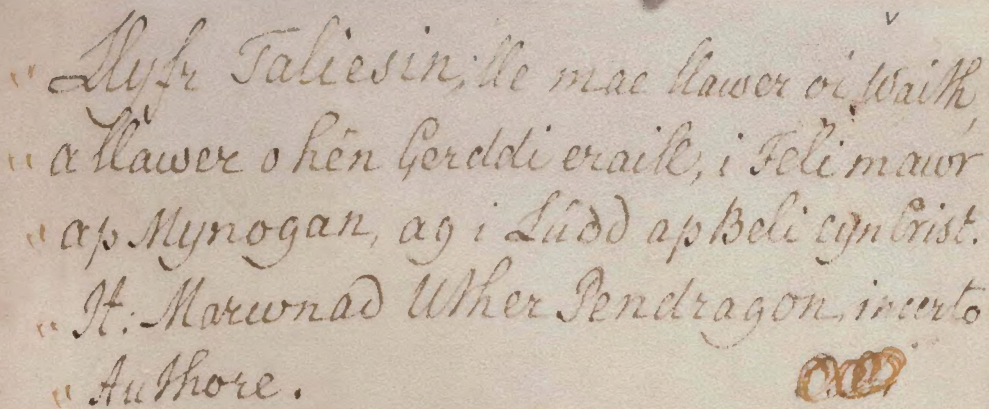 " Llyfr Taliesin; lle mae llawer o'i Waith,
" a llawer o hên Gerddi eraill, i Feli mawr
" ap Mynogan, ag i Lûdd ap Beli cyn Crist.
" It: Marwnad Uther Pendragon, incerto
" Authore.